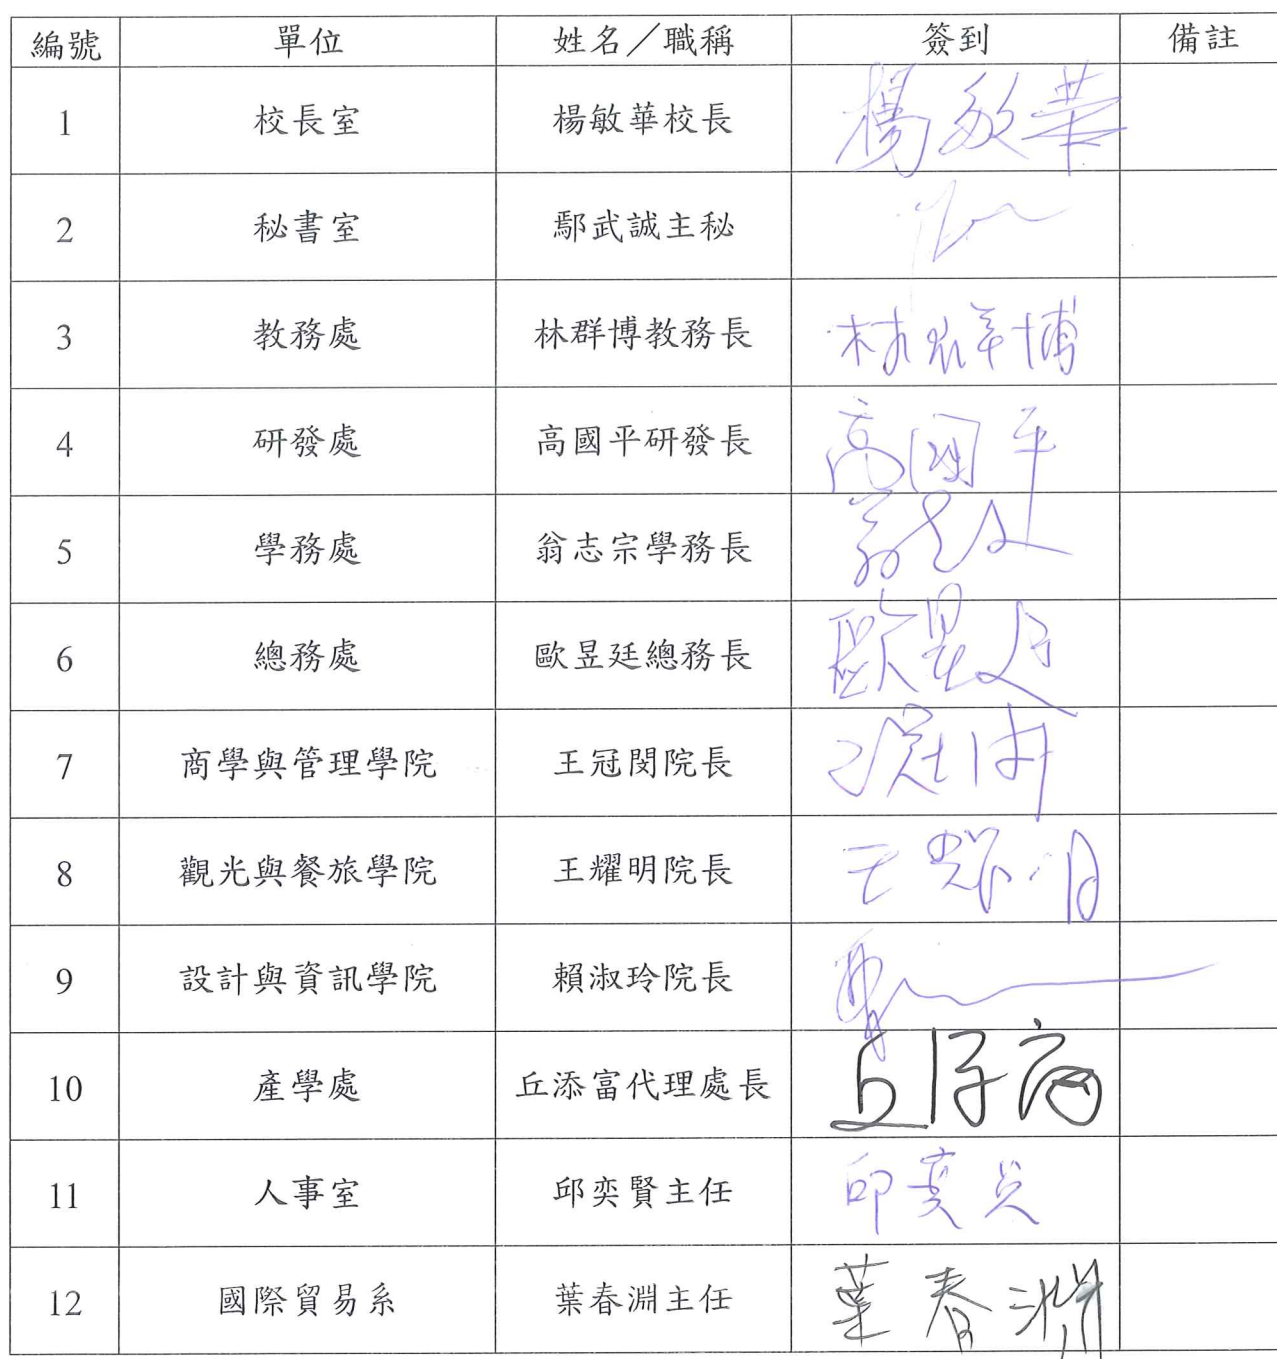 編號 單位 姓名／職稱 簽到 備註
1 校長室 楊敏華校長 楊敏華
2 秘書室 鄢武誠主秘
3 教務處 林群博教務長 林群博
4 研發處 高國平研發長 高國平
5 學務處 翁志宗學務長
6 總務處 歐昱廷總務長 歐昱廷
7 商學與管理學院 王冠閔院長
8 觀光與餐旅學院 王耀明院長 王耀明
9 設計與資訊學院 賴淑玲院長
10 產學處 丘添富代理處長
11 人事室 邱奕賢主任 邱奕賢
12 國際貿易系 葉春淵主任 葉春淵